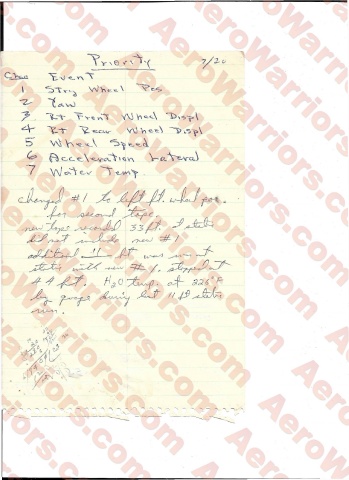 Priority 7/20
Event
1 Strg Wheel Pos
2 Yaw
3 Rt Front Wheel Displ
4 Rt Rear Wheel Displ
5 Wheel Speed
6 Acceleration Lateral
7 Water Temp.
changed #1 to left ft. wheel pos.
for second tape.
new tape recorded 33 ft. I state
did not include new #1
additional 11 ft was run at
with new #1. stopped at
44 ft. H2O temp. at 226° F
by gauge during last 11 ft
run.
AeroWarriors.com